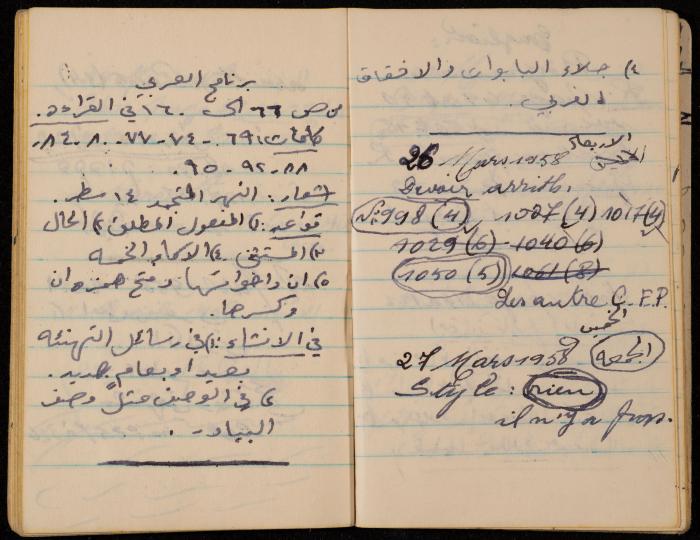 برنامج العربي
من ص ٦٦ الى ١٦٠ في القراءة.
كلمات: ٦٩ - ٧٤ - ٧٧ - ٨٠ - ٨٤ -
٨٨ - ٩٢ - ٩٥ -
اشعار: النهر المتجمد ١٤ سطر.
قواعد: ١) المفعول المطلق ٢) الحال
٣) المستثنى ٤) الاسماء الخمسه
٥) ان واخواتها وفتح همزة ان
وكسرها.
في الانشاء: ١) في رسائل التهنئه
بعيد او بعام جديد.
٢) في الوصف مثلاً وصف
البيادر.
٢) جلاء البابوات والافقاق
الغربي.
الاربعاء
26 Mars 1958
Devoir arrith.
No: 998 (4) 1027 (4) 1017 (4)
1029 (6) - 1040 (6)
1050 (5) 1061 (8)
Les autre C. E. P.
الخميس
27 Mars 1958 الجمعة
Style: rien
il n'y a pas.